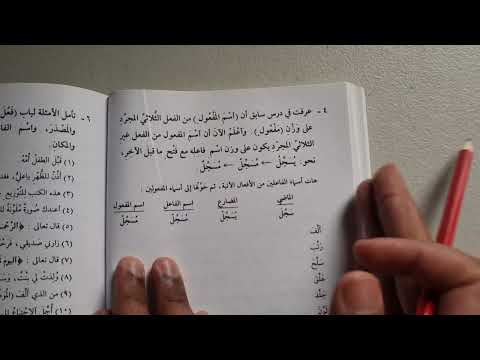 ٤ - عرفت في درس سابق أن (اسْمَ الْمَفْعُولِ) مِنَ الفعل الثُّلاثيِّ المجرَّدِ
على وَزْنِ (مَفْعُول). واعْلَمْ الآنَ أنّ اسْمَ المفعول من الفعل غيرِ
الثلاثيِّ المجرَّدِ يكون على وزن اسْمِ فاعِلِهِ مع فَتْحِ ما قبل الآخر،
نحو: يُسَجِّلُ ← مُسَجِّلٌ ← مُسَجَّلٌ
هات أسماءَ الفاعلين من الأفعال الآتية، ثم حَوِّلْها إلى أسماء المفعولين:
الماضي المضارع اسم الفاعل اسم المفعول
سَجَّلَ يُسَجِّلُ مُسَجِّلٌ مُسَجَّلٌ
أَلَّفَ
رَتَّبَ
سَلَّحَ
عَلَّقَ
جَلَّدَ
لَوَّنَ
٦ - تأمل الأمثلة لباب (فَعَّلَ
والمَصْدَرَ، واسْمَ الفا
والمكان:
(١) قَبَّلَ الطفلُ أُمَّهُ
(٣) هذه الكتب لِلتَّوْزِيعِ
(٤) أعندك صُورَةٌ مُلَوَّنَةٌ
(٥) قال تعالى: ﴿الرَّحْمَـ
(٦) زارني صديقي،
(٧) قال تعالى: ﴿اليوم
(٨) وُلِدَتْ لي بِنْتٌ،
(٩) من الذي أَلَّفَ
(١٠)